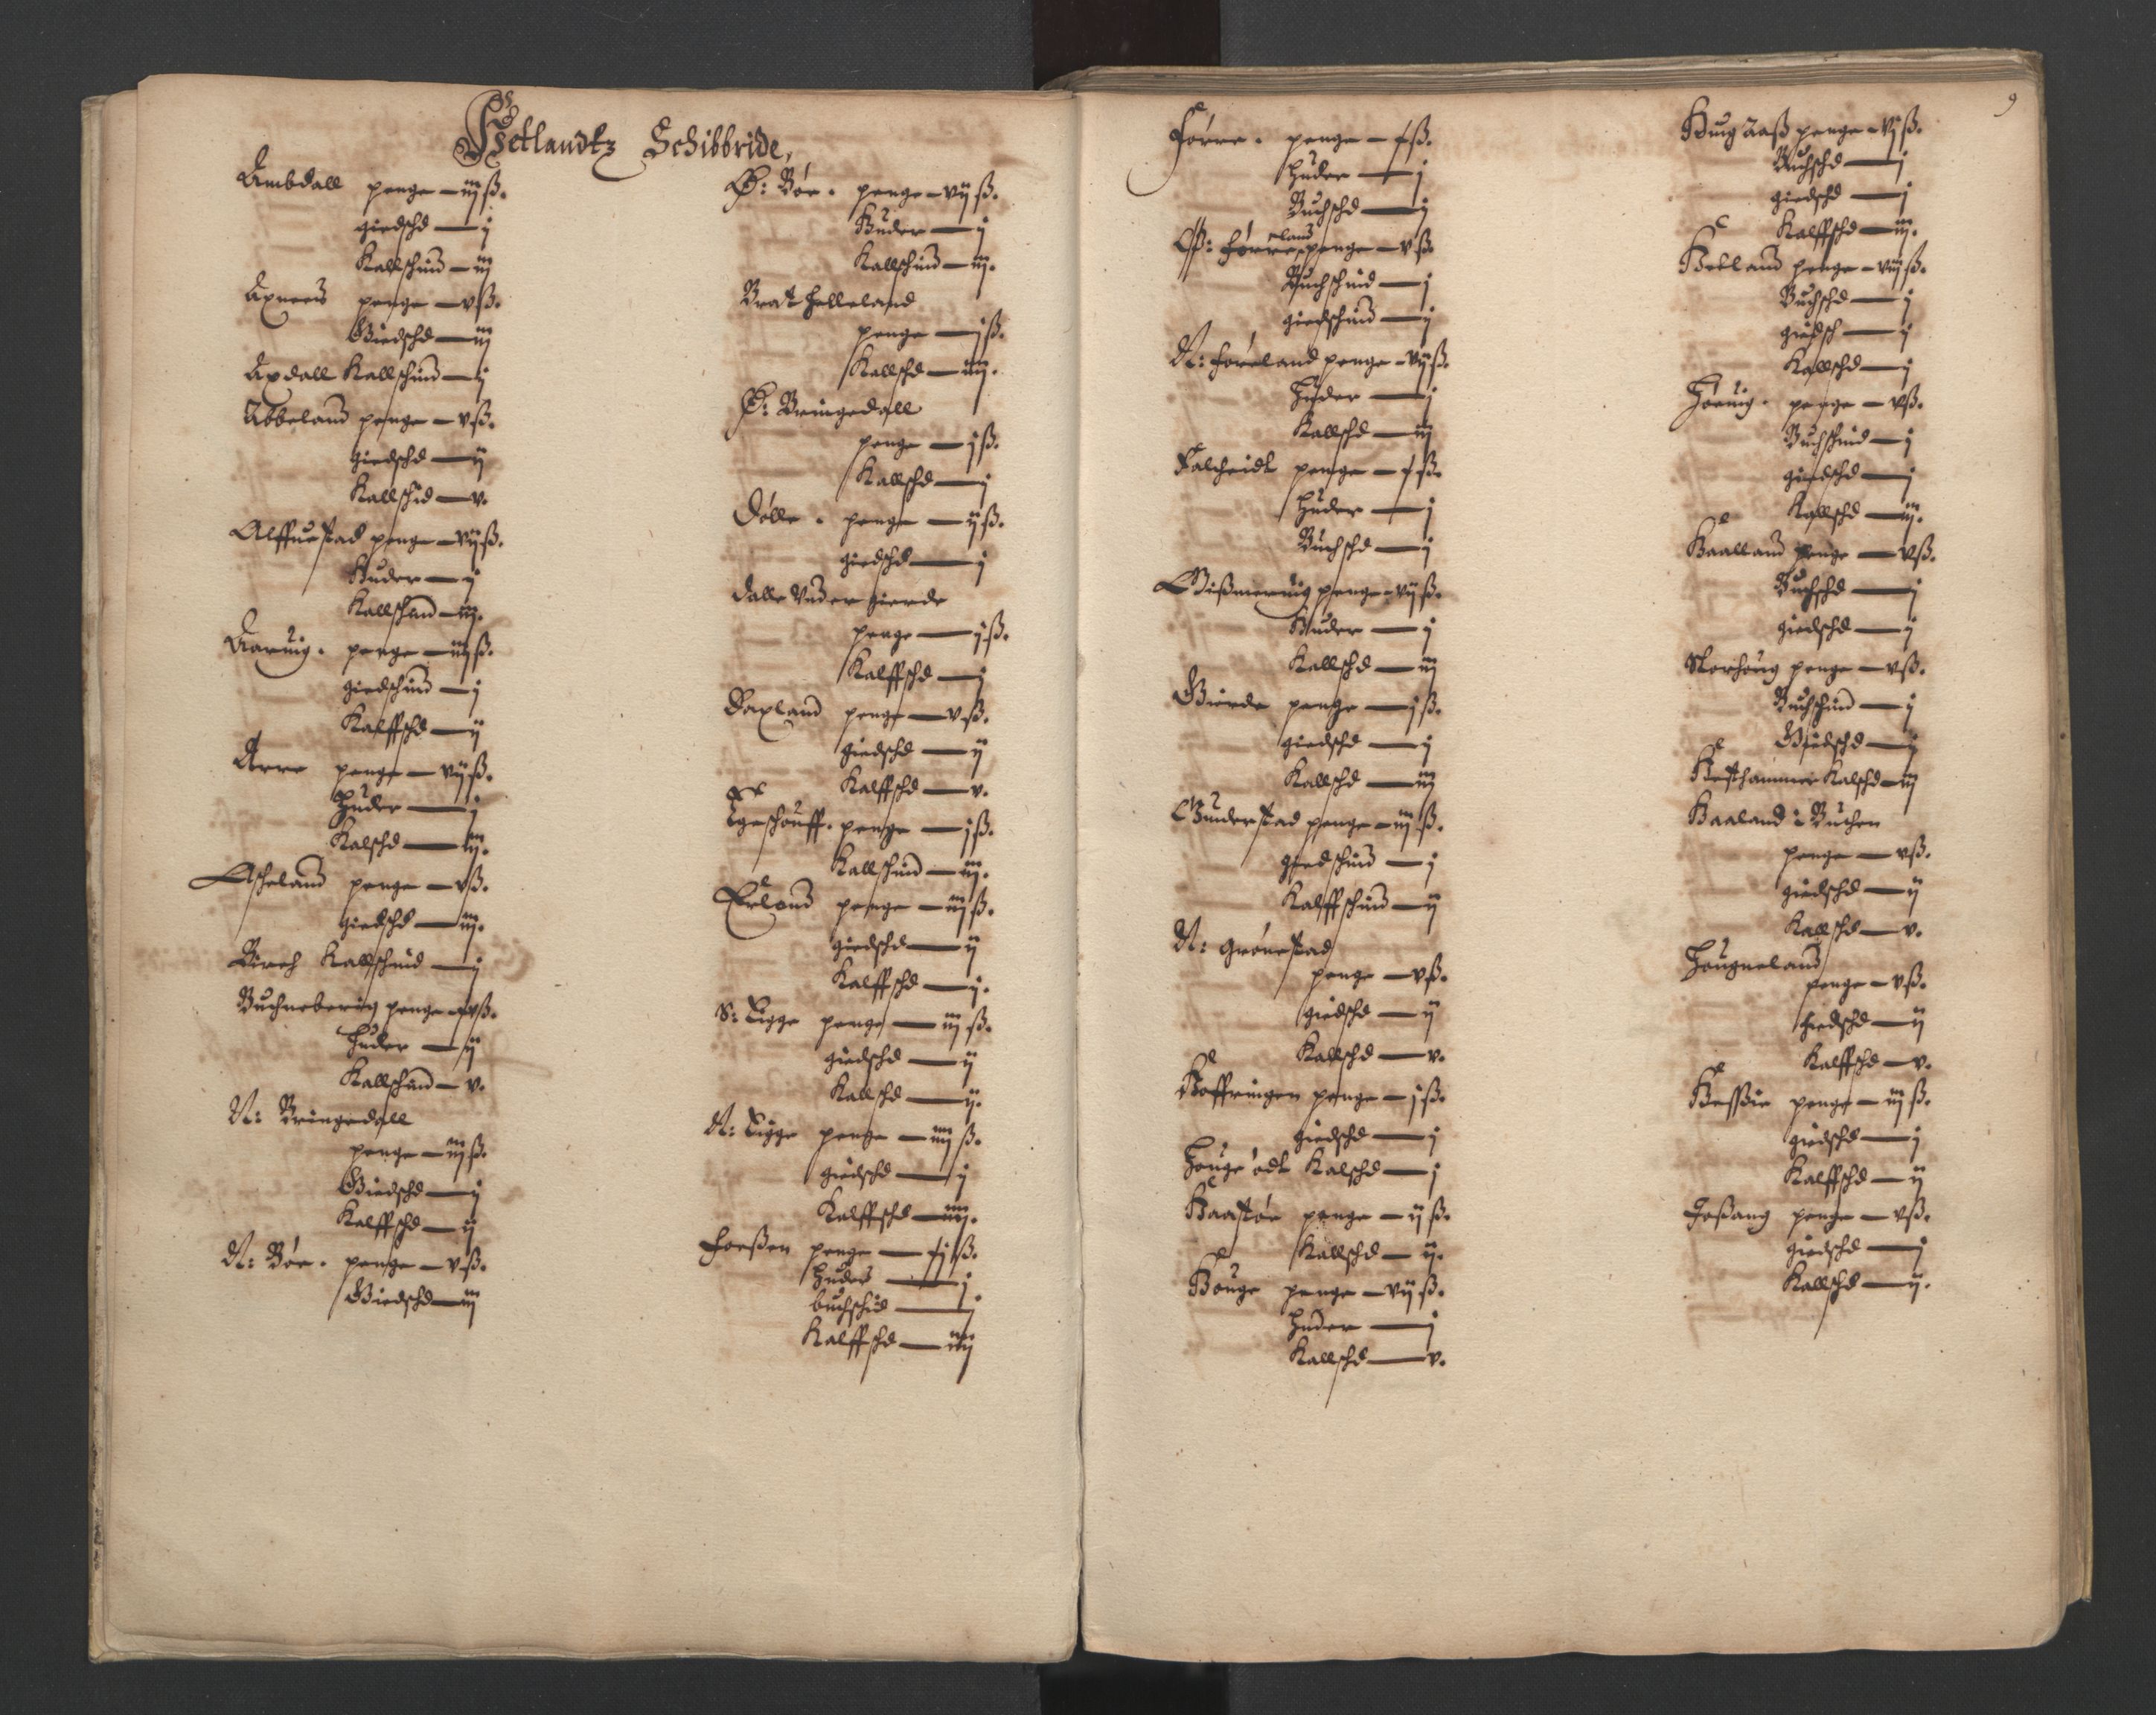 Hetlandtz Schibbride,
Ambdall penge – iiij ß.
giedschd – j
Kallschind – iij
Axnees penge – v ß.
Giedschd – iij
Axdall Kallschind – ij
Abbeland penge – v ß.
giedschd – ij
Kallschid – v.
Alffuestad penge – vij ß.
Huder – j
Kallschind – iij.
Aaruig. penge – iiij ß.
giedschind – j
Kalffschd – ij
Arre penge – vij ß.
Huder – j
Kalschd – iij.
Ascheland penge – v ß.
giedschd – iij.
Birch Kallschind – ij
Buchneberig penge – xv ß.
Huder – ij
Kallschind – v.
N: Bringedall
penge – iij ß.
Giedschd – j
Kalffschd – ij
N: Bøe. penge – v ß.
Giedschd – iij
Ø: Bøe. penge – vij ß.
Huder – j
Kallschind – iij.
Brat helleland
penge – j ß.
Kallschd – iiij.
Ø: Bringedall
penge – j ß.
Kallschd – j
Dølle. penge – ij ß.
giedschd – j
Dalle Under gierde
penge – j ß.
Kalffschd – j
Daxland penge – v ß.
giedschd – ij
Kalffschd – v.
Egeshouff. penge – j ß.
Kallschind – iij.
Erland penge – iij ß.
giedschd – ij
Kalffschd – ij.
S: Eigge penge – iij ß.
giedschd – ij
Kallschd – ij.
N: Eigge penge – iiij ß.
giedschd – j
Kalffschd – iiij.
Forßen penge – xj ß.
Huder – j
buchschid – j
Kalffschd – iiij
Førre. penge – x ß.
Huder – j
Buchschd – ij
Ø: Førreland penge – v ß.
Buchschind – j
giedschind – ij
N: Føreland penge – vij ß.
Huder – j
Kallschd – iij
Falcheidt penge – x ß.
Huder – j
Buchschd – j
Gißmeruig penge – vij ß.
Huder – j
Kallschd – iij
Gierde penge – j ß.
giedschd – j
Kallschd – iij
Gunderstad penge – iij ß.
giedschind – j
Kalffschind – ij
N: Grønestad
penge – v ß.
giedschd – ij
Kallschd – v.
Hoffringen penge – j ß.
giedschd – j
Houge ødt Kalschd – j
Haastøe penge – ij ß.
Kallschd – ij.
Houge penge – vij ß.
Huder – j
Kallschd – v.
9
Huig aaß penge – vj ß.
Buchschd – j
giedschd – j
Kalffschd – iij.
Hetland penge – viij ß.
Buchschd – j
giedsch – j
Kallschd – j
Høeuig. penge – v ß.
Buchschind – j
giedschd – j
Kallschd – iij.
Haalland penge – v ß.
Buchschd – j
giedschd – j
Storhoug penge – v ß.
Buchschind – j
Giedschd – ij
Hesthammer Kalschd – iij
Haaland i Buchen
penge – v ß.
giedschd – ij
Kallschd – v.
Hougneland
penge – v ß.
giedschd – ij
Kalffschd – v.
Heßie penge – iij ß.
giedschd – j
Kalffschd – ij
Joßang penge – v ß.
giedschd – j
Kallschd – ij.